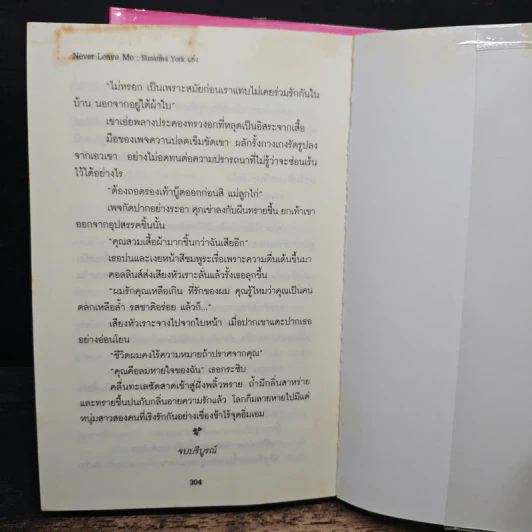 Never Leave Me : Susanna York แต่ง
"ไม่หรอก เป็นเพราะสมัยก่อนเราแทบไม่เคยร่วมรักกันใน
บ้าน นอกจากอยู่ใต้ผ้าใบ"
เขาเอ่ยพลางประคองทรวงอกที่หลุดเป็นอิสระจากเสื้อ
มือของเพจควานปลดเข็มขัดเขา ผลักรั้งกางเกงรัดรูปลง
จากเอวเขา อย่างไม่อดทนต่อความปรารถนาที่ไม่รู้ว่าจะซ่อนเร้น
ไว้ได้อย่างไร
"ต้องถอดรองเท้าบู๊ตออกก่อนสิ แม่ลูกไก่"
เพจกัดปากอย่างระอา คุกเข่าลงกับผืนทรายขึ้น ยกเท้าเขา
ออกจากอุปสรรคชิ้นนั้น
"คุณสวมเสื้อผ้ามากชิ้นกว่าฉันเสียอีก"
เธอบ่นและเงยหน้าสีชมพูระเรื่อเพราะความตื่นเต้นขึ้นมา
คอลลินส์ส่งเสียงหัวเราะลั่นแล้วรั้งเธอลุกขึ้น
"ผมรักคุณเหลือเกิน ที่รักของผม คุณรู้ไหมว่าคุณเป็นคน
ตลกเหลือล้ำ รสชาติอร่อย แล้วก็..."
เสียงหัวเราะจางไปจากใบหน้า เมื่อปากเขาแตะปากเธอ
อย่างอ่อนโยน
"ชีวิตผมคงไร้ความหมายถ้าปราศจากคุณ"
"คุณคือลมหายใจของฉัน" เธอกระซิบ
คลื่นทะเลซัดสาดเข้าสู่ฝั่งพลิ้วพราย ถ้ำมีกลิ่นสาหร่าย
และทรายขึ้นปนกับกลิ่นอายความรักแล้ว โลกก็มลายหายไปมีแต่
หนุ่มสาวสองคนที่เริงรักกันอย่างเชื่องช้าไร้จุดอิ่มเอม
จบบริบูรณ์
304